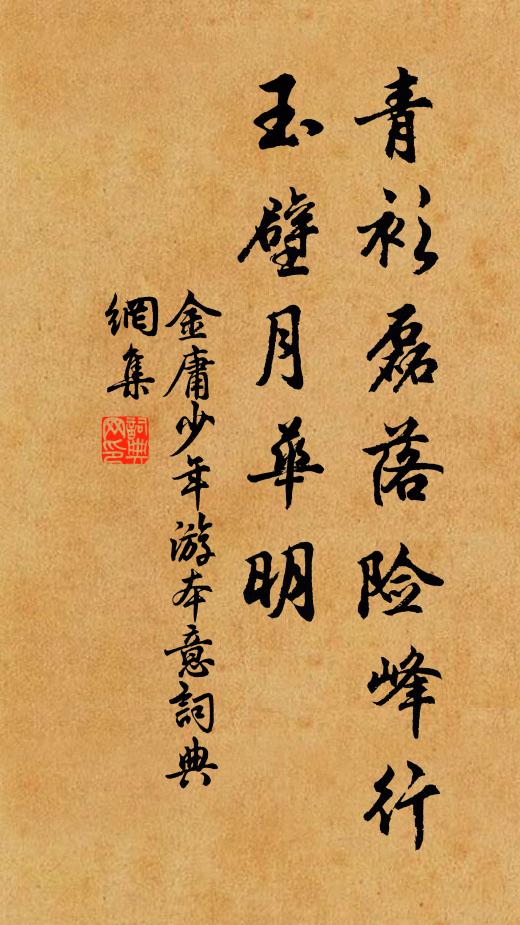 青衫磊落险峰行
玉壁月華明
金庸少年游本意詞典
網集
詞典
网印